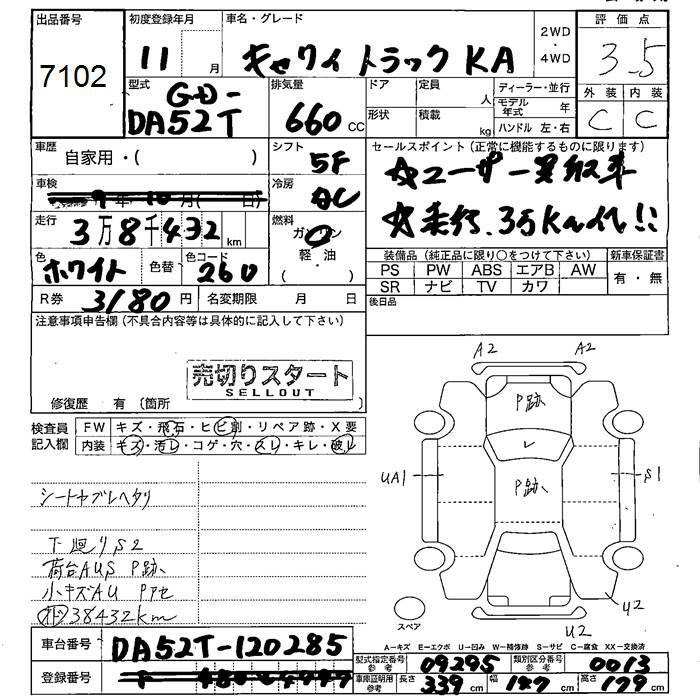 出品番号
7102
初度登録年月
11 月
車名・グレード
キャリィ トラック KA
2WD
・
4WD
評価点
3.5
型式
GD-
DA52T
排気量
660 cc
ドア
定員
人
形状
積載
kg
ディーラー・並行
モデル年式 年
ハンドル 左・右
外装 内装
C C
車歴
自家用・( )
シフト
5F
セールスポイント(正常に機能するものに限ります)
☆ユーザー買取車
☆走行、3万Km代!!
車検
9年10月( 日)
冷房
AC
走行
3万8千432 km
燃料
ガソリン
軽・油
( )
色
ホワイト
色替
色コード
260
装備品(純正品に限り○をつけて下さい)
新車保証書
PS PW ABS エアB AW
SR ナビ TV カワ
有・無
R券 3180円
名変期限 月 日
後日品
注意事項申告欄(不具合内容等は具体的に記入して下さい)
売切りスタート
SELLOUT
修復歴 有(箇所 )
検査員
記入欄
FW キズ・飛石・ヒビ割・リペア跡・X要
内装 キズ・汚レ・コゲ・穴・スレ・キレ・破レ
シートヤブレヘタリ
下廻りS2
荷台AUS P跡、
小キズAU Pアセ
38432km
A2 A2
P跡
レ
P跡、
UA1
S1
U2
U2
スペア
A−キズ E−エクボ U−凹み W−補修跡 S−サビ C−腐食 XX−交換済
車台番号 DA52T-120285
登録番号
型式指定番号
参考
09295
類別区分番号
参考
0013
車庫証明用
参考
長さ 339 cm 幅 147 cm 高さ 179 cm